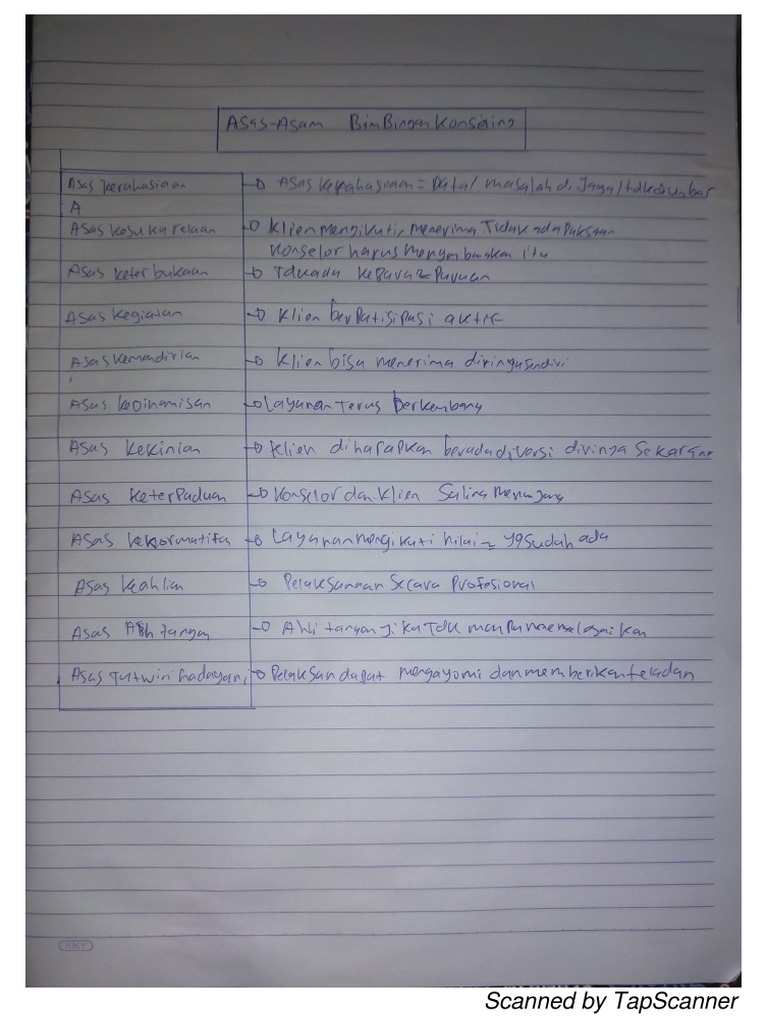 Asas-Asam BimBingan Konseling
Asas kerahasiaan → Asas kerahasiaan = Data/ masalah di Jaga/tdk disebar
A
Asas kesukarelaan → klien mengikuti, menerima Tidak ada Paksaan
konselor harus mengmbangkan itu
Asas keterbukaan → Tdk ada kepura2 Puraan
Asas kegiatan → klien berpatisipasi aktif
Asas kemandirian → klien bisa menerima dirinya sendiri
Asas keDinamisan → Layanan terus berkembang
Asas kekinian → klien diharapkan berada diversi dirinya sekarang
Asas keterPaduan → konselor dan klien Saling menunjang
Asas kenormatifan → Layanan mengikuti nilai2 yg sudah ada
Asas keahlian → Pelaksanaan Secara Profesional
Asas Alih tangan → Alli tangan Jika Tdk mampu
Asas Tutwuri hadayani → Pelaksan dapat mengayomi dan memberikan teladan
KKY
Scanned by TapScanner